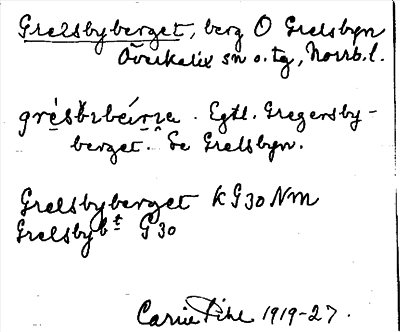 Grelsbyberget, berg O Grelsbyn
Överkalix sn o. tg, Norrb. l.
Egtl. Gregersby-
berget. Se Grelsbyn.
Grelsbyberget KG30 Nm
Grelsbybt G30
Carin Pihl 1919-27.